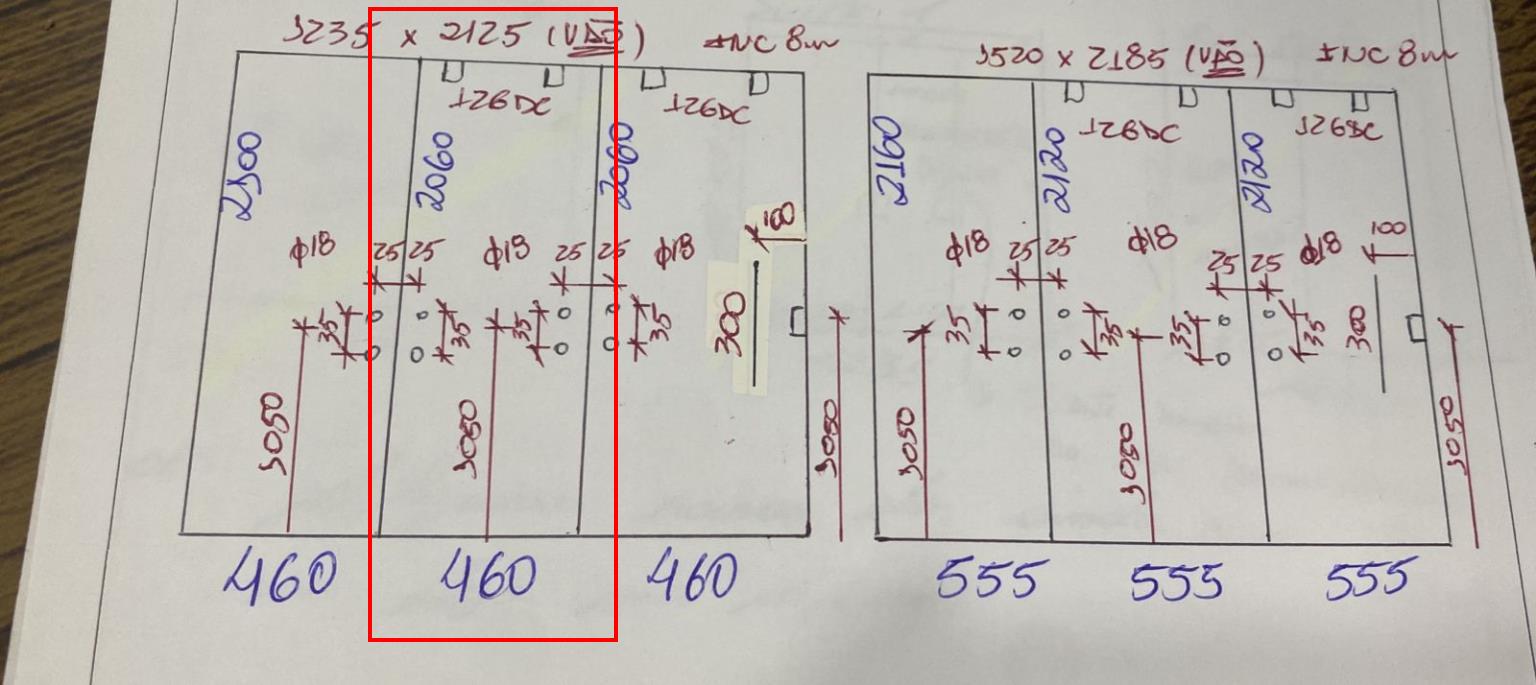 1235 x 2125 (VÃO) INC 8m
1520 x 2185 (VÃO) INC 8m
2100 2060 2060 100
2160 2120 2120 100
ϕ18 25 25 ϕ18 25 25 ϕ18
ϕ18 25 25 ϕ18 25 25 ϕ18
35 35 35 35 300
35 35 35 35 300
1050 1050 1050
1050 1050 1050
460 460 460
555 555 555